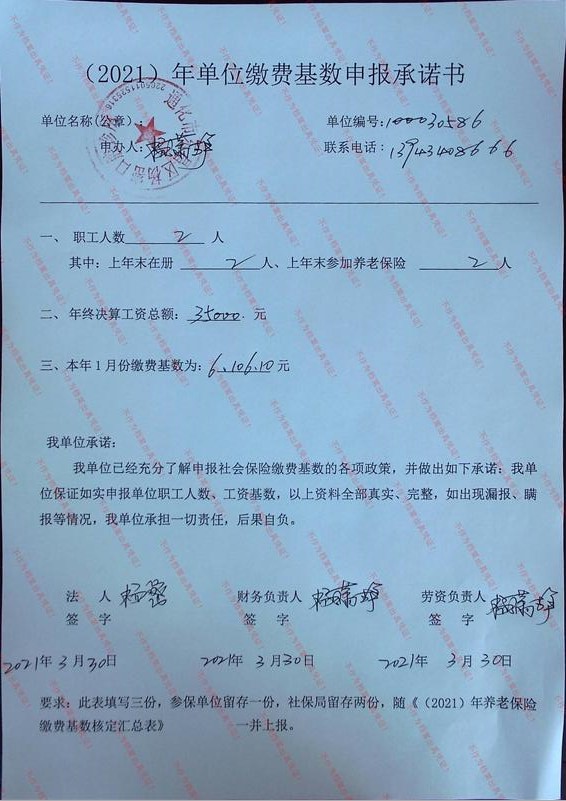 （2021）年单位缴费基数申报承诺书
单位名称(公章)： 单位编号:100030586
申办人: 联系电话：13943408666
一、 职工人数 2 人
其中：上年末在册 2 人、上年末参加养老保险 2 人
二、 年终决算工资总额: 35000. 元
三、本年1月份缴费基数为: 6.106.10 元
我单位承诺:
我单位已经充分了解申报社会保险缴费基数的各项政策，并做出如下承诺: 我单
位保证如实申报单位职工人数、工资基数，以上资料全部真实、完整，如出现漏报、瞒
报等情况，我单位承担一切责任，后果自负。
法 人 财务负责人 劳资负责人
签 字 签 字 签 字
2021年 3月 30日 2021年 3月 30日 2021年 3月 30日
要求: 此表填写三份，参保单位留存一份，社保局留存两份，随《（2021）年养老保险
缴费基数核定汇总表》 一并上报。